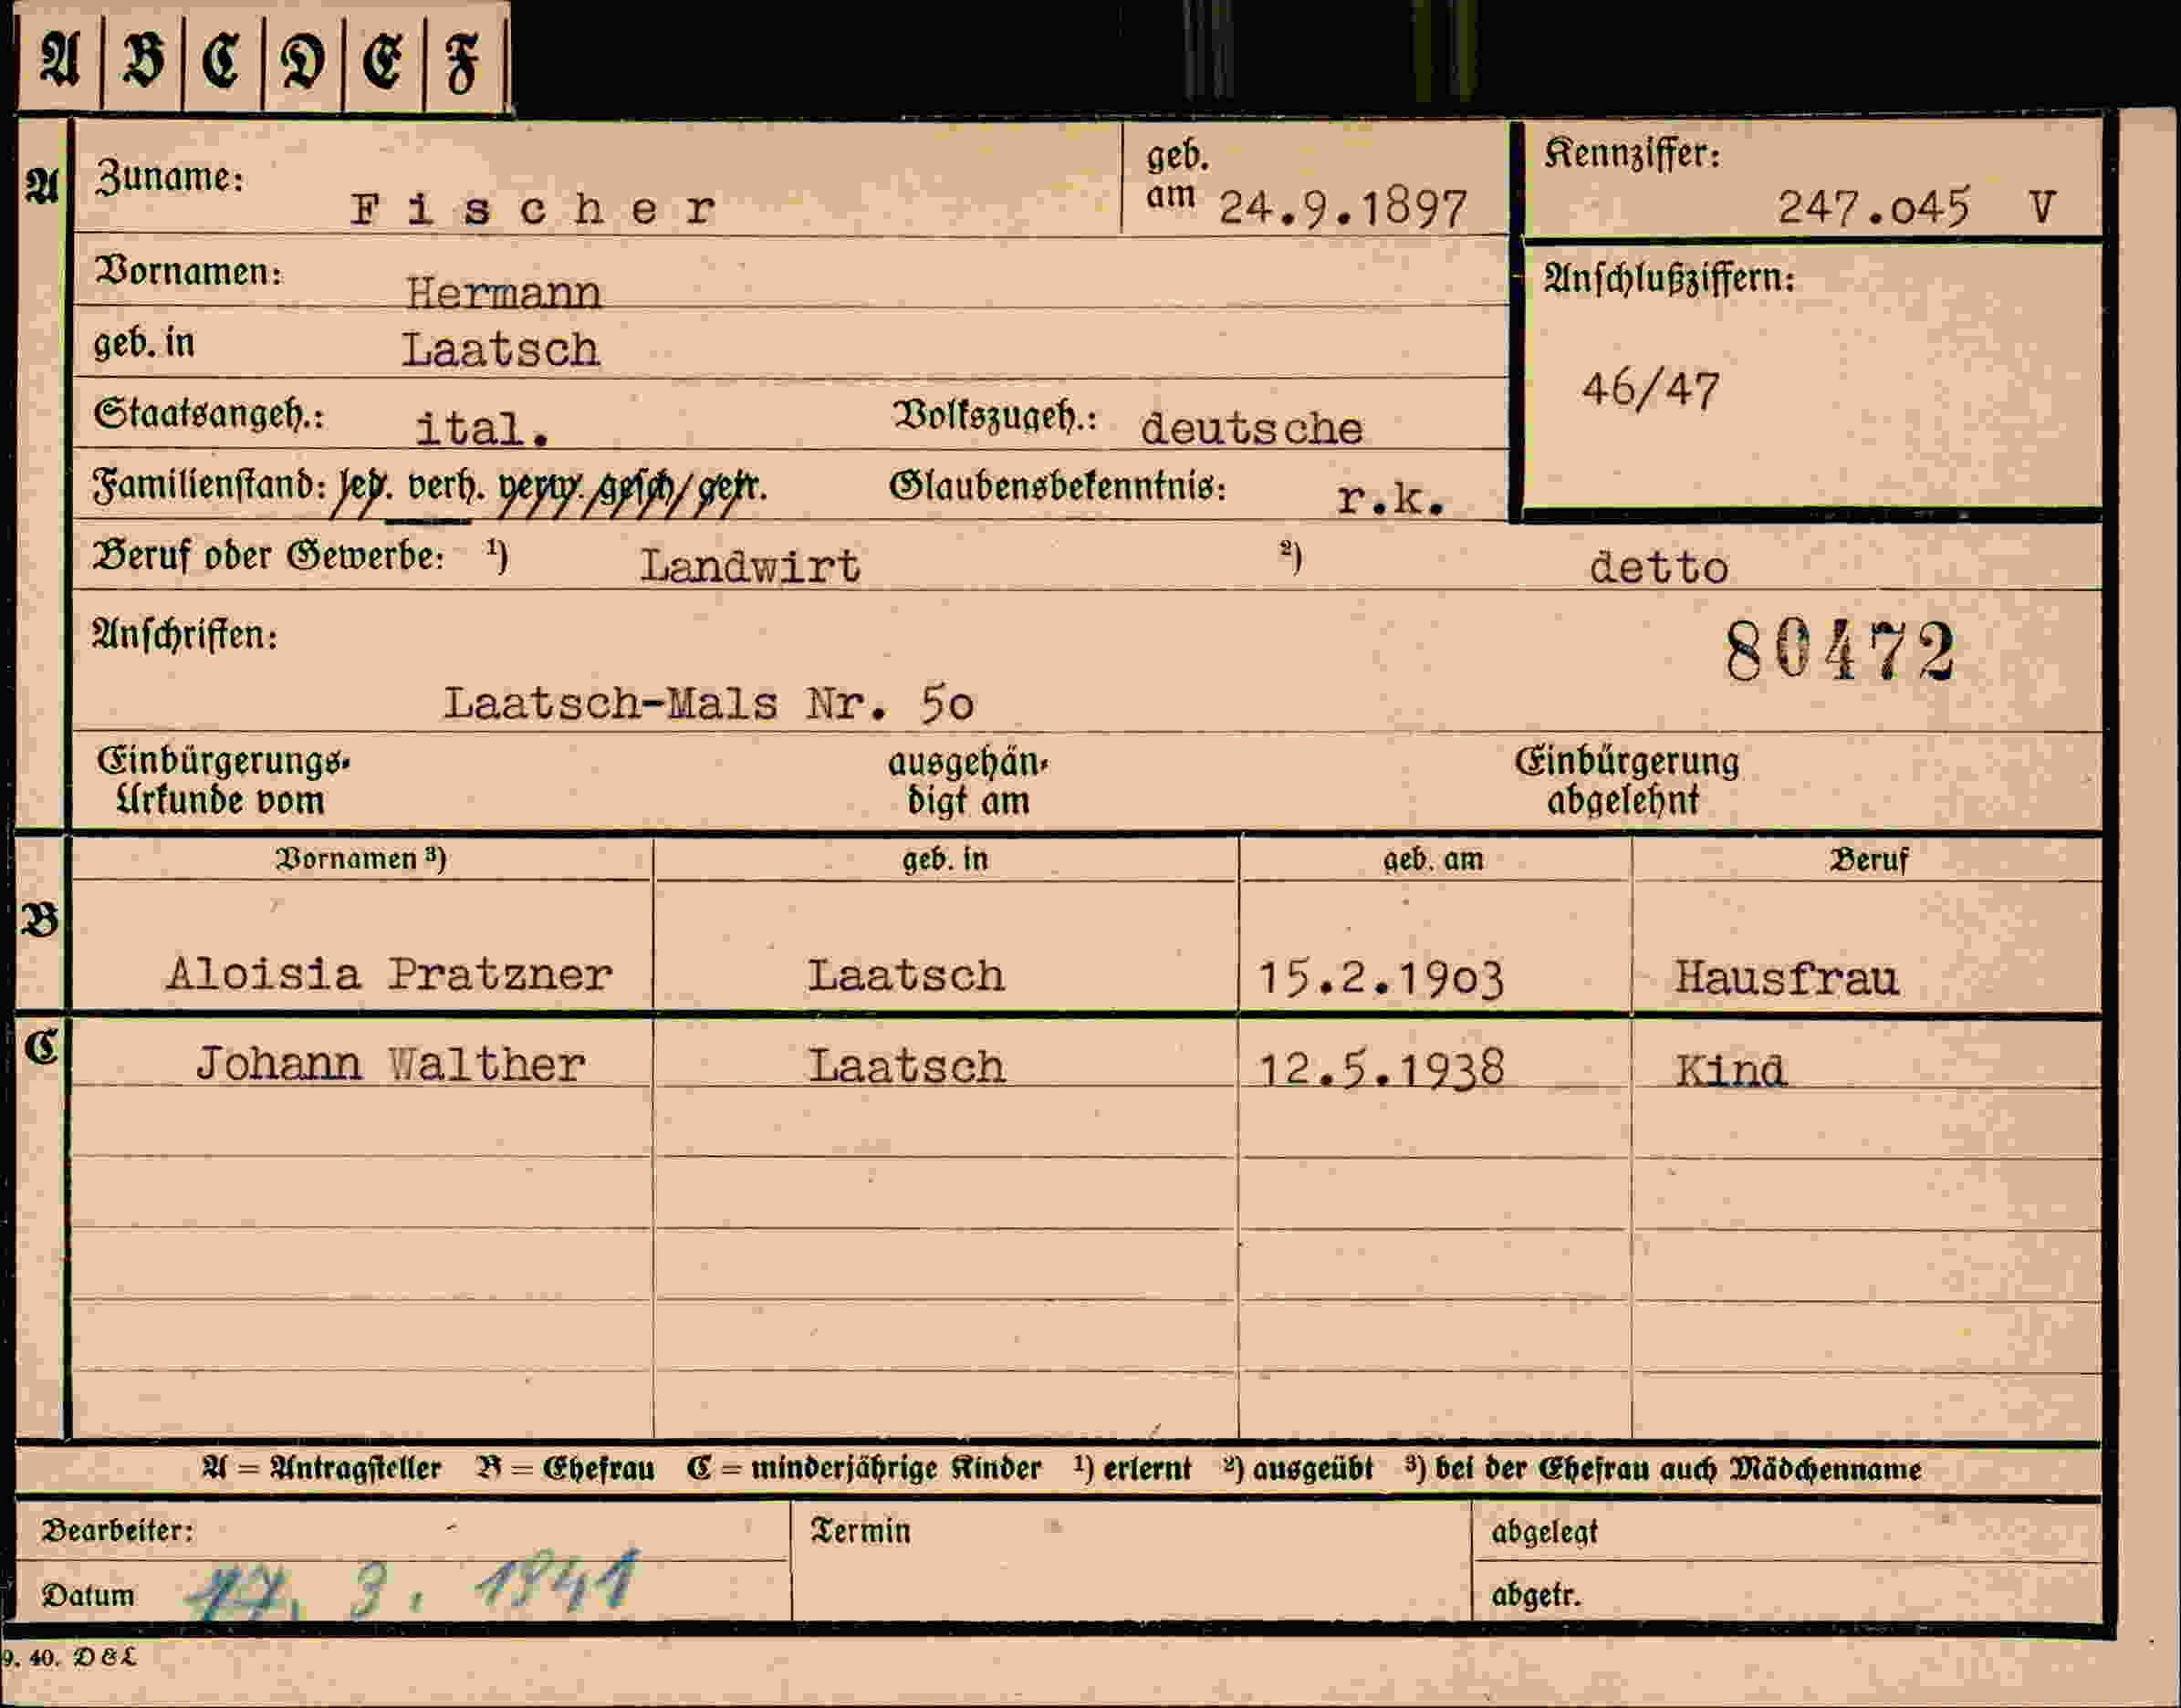 A B C D E F
A Zuname: Fischer geb. am 24.9.1897 Kennziffer: 247.o45 V
Vornamen: Hermann Anschlußziffern:
geb. in Laatsch 46/47
Staatsangeh.: ital. Volkszugeh.: deutsche
Familienstand: led. verh. verw. gesch. getr. Glaubensbekenntnis: r.k.
Beruf oder Gewerbe: ¹) Landwirt ²) detto
Anschriften: 80472
Laatsch-Mals Nr. 5o
Einbürgerungs- ausgehän- Einbürgerung
Urkunde vom digt am abgelehnt
Vornamen ³) geb. in geb. am Beruf
B Aloisia Pratzner Laatsch 15.2.19o3 Hausfrau
C Johann Walther Laatsch 12.5.1938 Kind
A = Antragsteller B = Ehefrau C = minderjährige Kinder ¹) erlernt ²) ausgeübt ³) bei der Ehefrau auch Mädchenname
Bearbeiter: Termin abgelegt
Datum 17. 3. 1941 abgetr.
9. 40. D & L